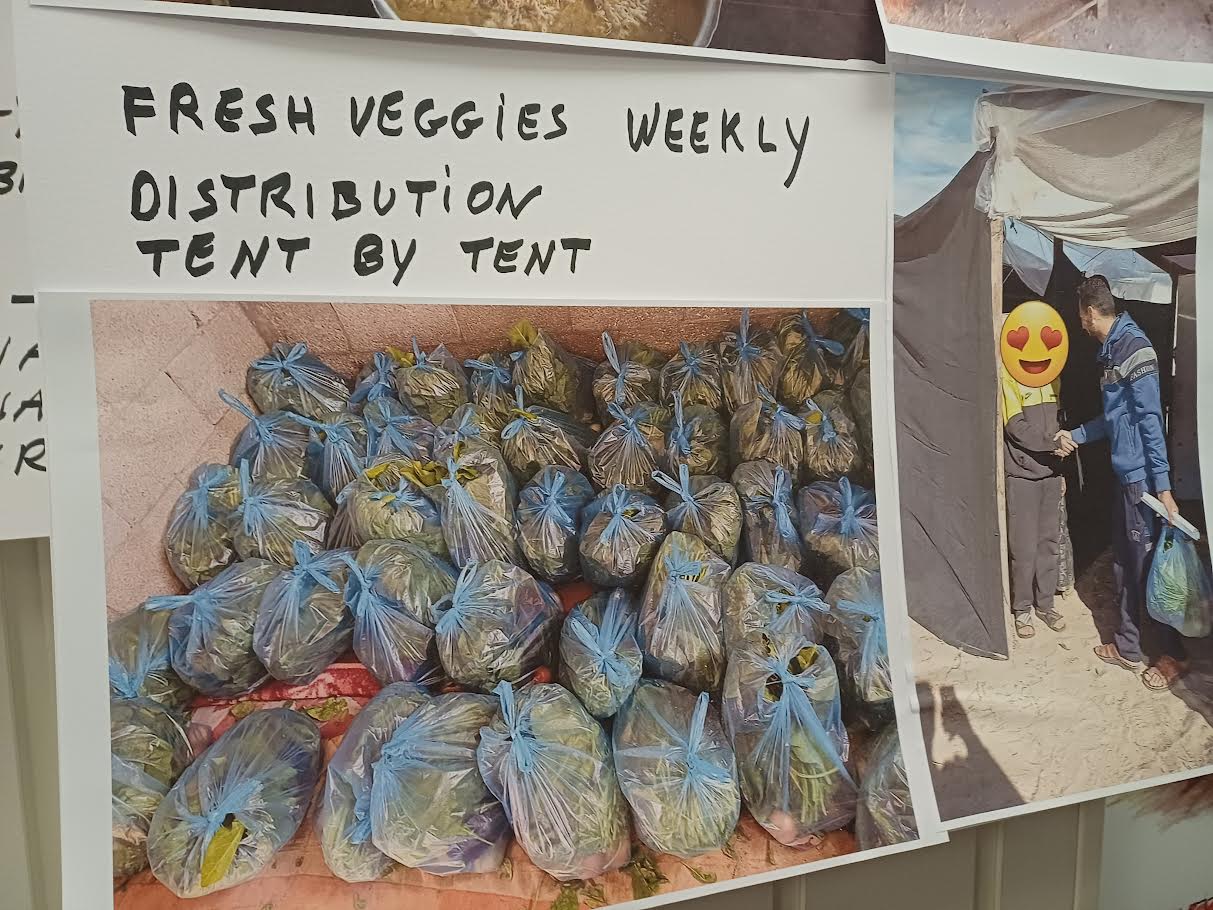 FRESH VEGGiES WEEKLY
DISTRIBUTiON
TENT BY TENT
FASHION